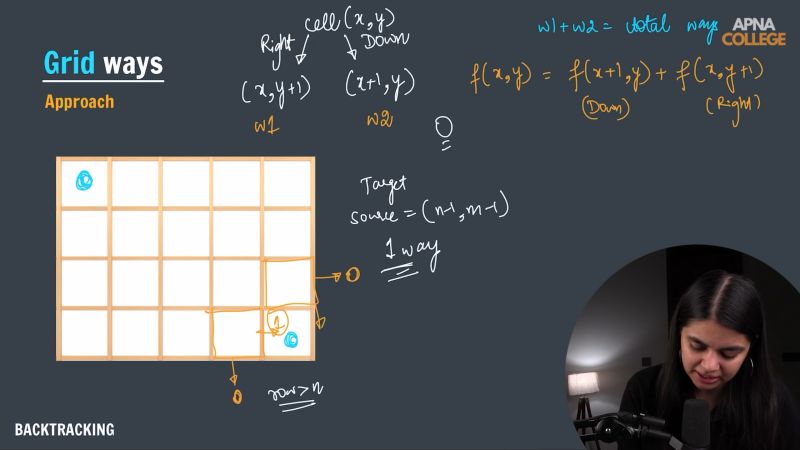 cell (x,y)
Right
Down
(x, y+1)
(x+1, y)
w1
w2
w1 + w2 = total ways
APNA
COLLEGE
f(x,y) = f(x+1,y) + f(x,y+1)
(Down)
(Right)
Grid ways
Approach
0
Target
source = (n-1, m-1)
1 way
0
1
0
row > n
BACKTRACKING